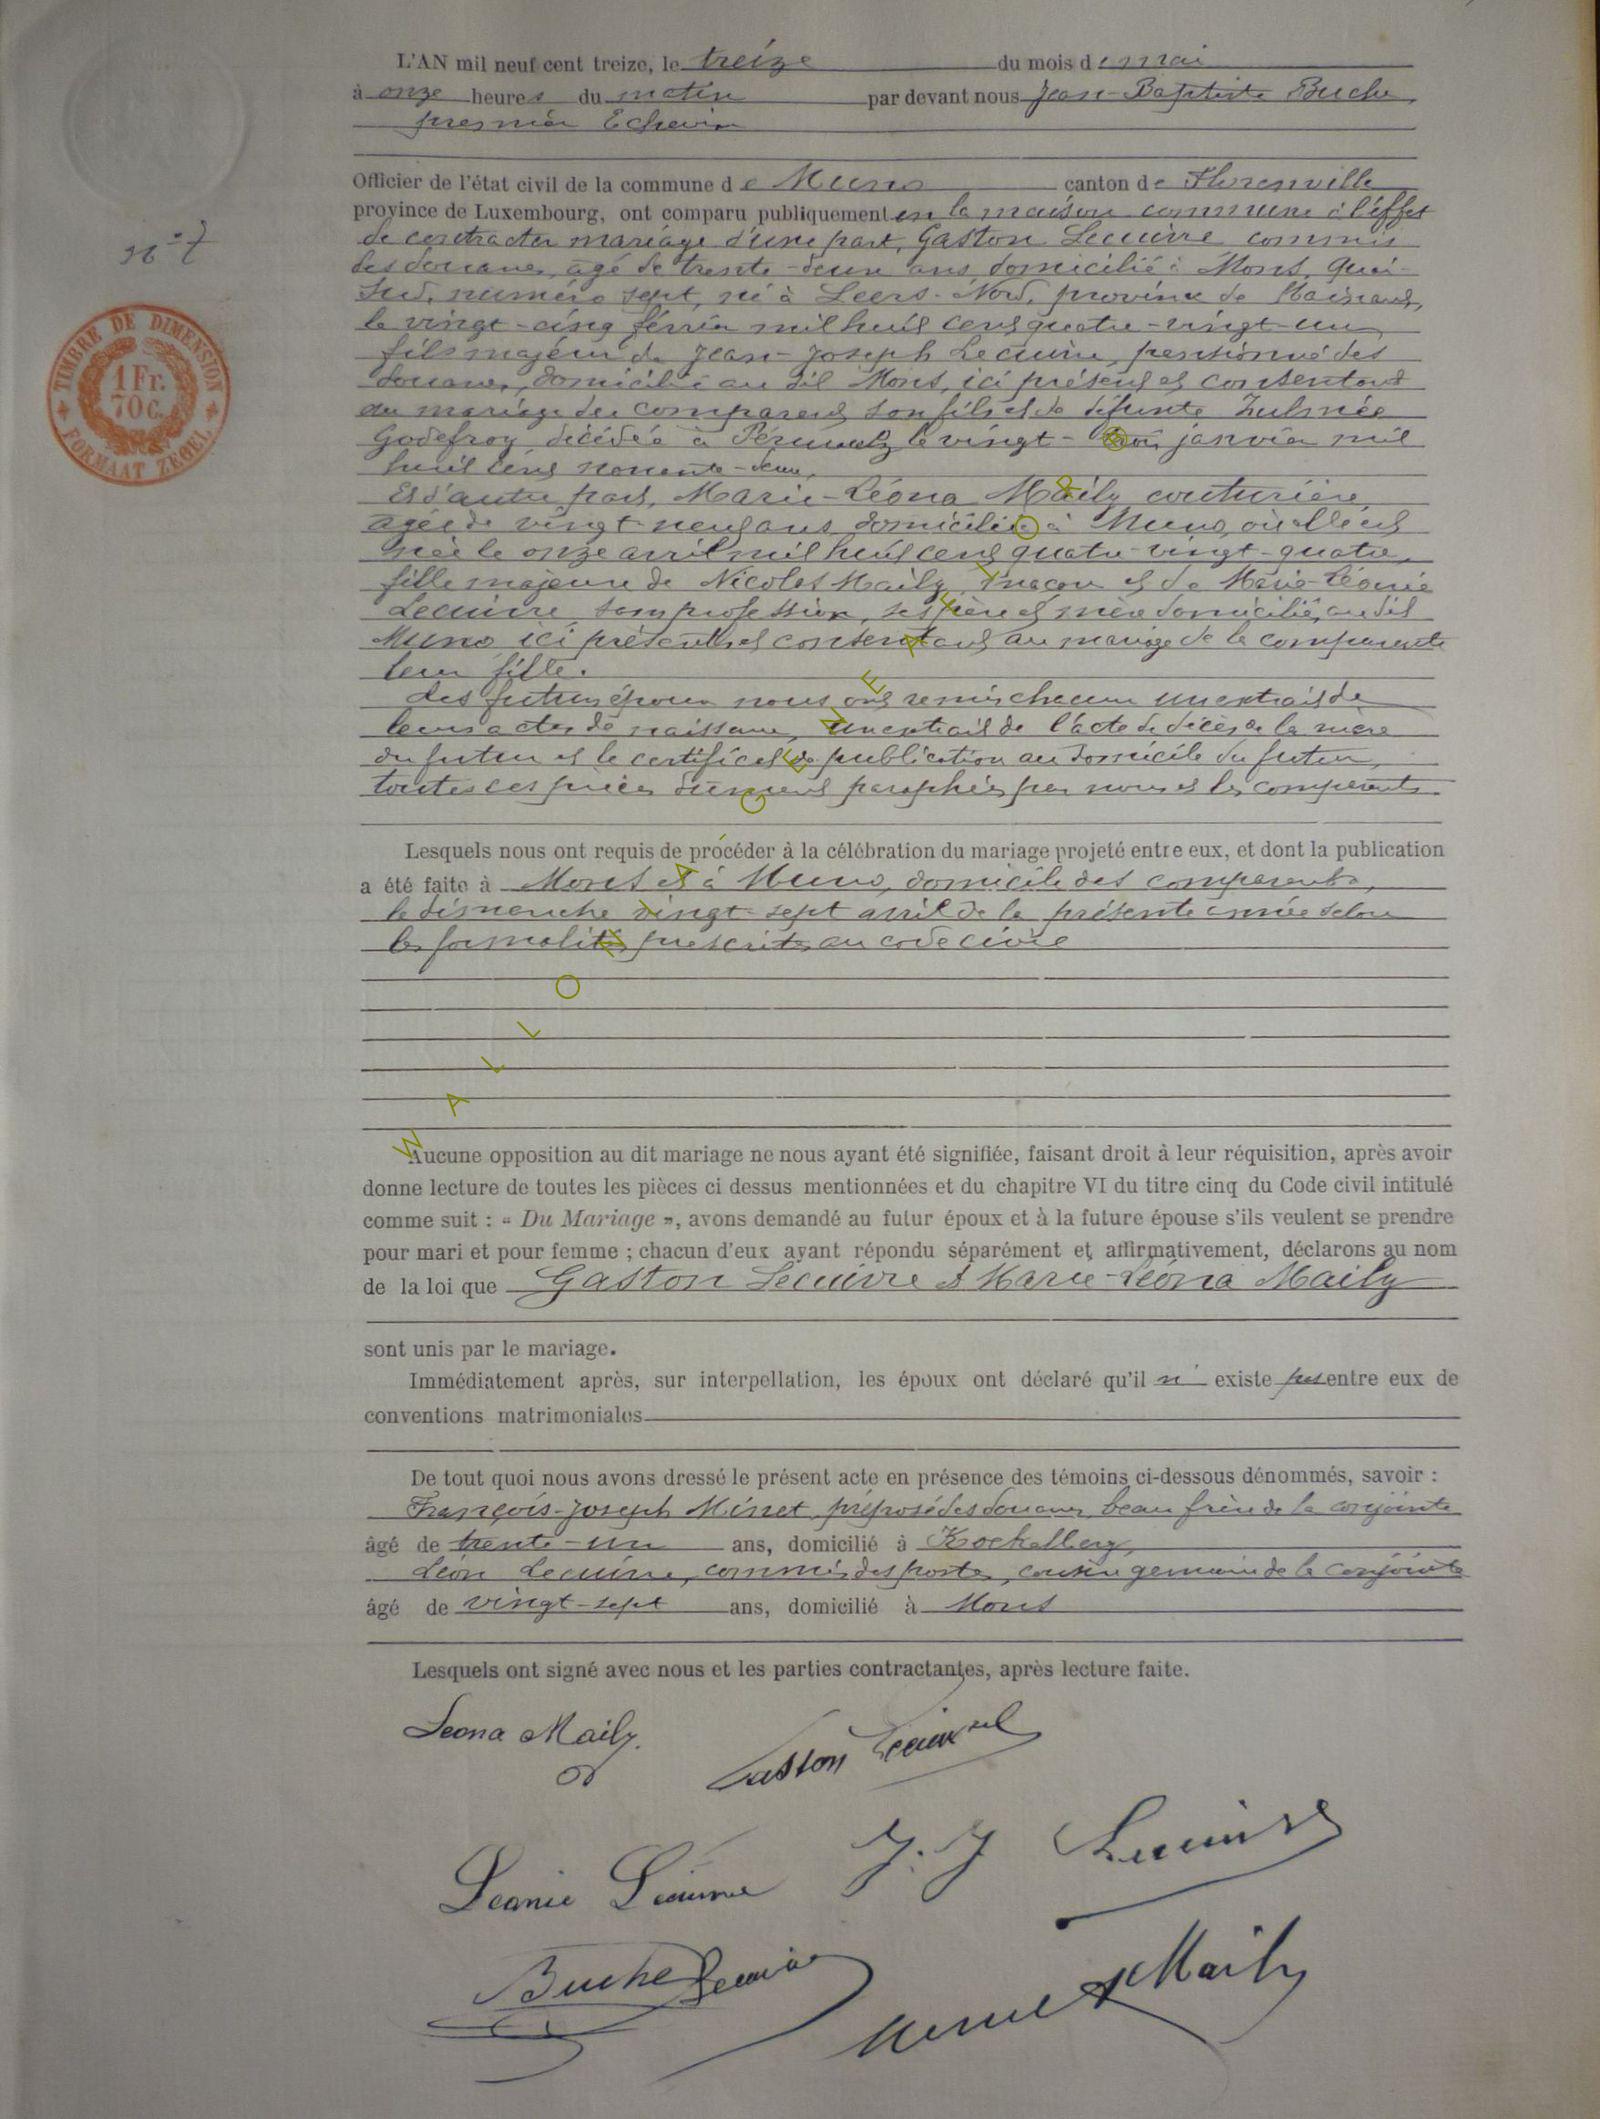 L'AN mil neuf cent treize, le treize du mois de mai
à onze heures du matin par devant nous Jean-Baptiste Buche,
premier Echevin
Officier de l'état civil de la commune de Muno canton de Florenville
province de Luxembourg, ont comparu publiquement en la maison commune à l'effet
de contracter mariage d'une part, Gaston Lecuivre commis
des douanes, âgé de trente-deux ans, domicilié à Mons, Quai-
Sud, numéro sept, né à Leers-Nord, province de Hainaut,
le vingt-cinq février mil huit cent quatre-vingt-un,
fils majeur de Jean-Joseph Lecuivre, pensionné des
douanes, domicilié au dit Mons, ici présent et consentant
au mariage du comparant son fils et de défunte Zulmée
Godefroy décédée à Péruwelz le vingt-trois janvier mil
huit cent nonante-deux.
Et d'autre part, Marie-Léona Maily couturière
agée de vingt-neuf ans, domiciliée à Muno, où elle est
née le onze avril mil huit cent quatre-vingt-quatre,
fille majeure de Nicolas Maily, maçon et de Marie-Léonie
Lecuivre, sans profession, ses père et mère domiciliés au dit
Muno, ici présents et consentant au mariage de la comparante
leur fille.
Les futurs époux nous ont remis chacun un extrait de
leurs actes de naissance, un extrait de l'acte de décès de la mère
du futur et le certificat de publication au domicile du futur,
toutes ces pièces dûment paraphées par nous et les comparants.
Lesquels nous ont requis de procéder à la célébration du mariage projeté entre eux, et dont la publication
a été faite à Mons et à Muno, domicile des comparants,
le dimanche vingt-sept avril de la présente année selon
les formalités prescrites au code civil
Aucune opposition au dit mariage ne nous ayant été signifiée, faisant droit à leur réquisition, après avoir
donne lecture de toutes les pièces ci dessus mentionnées et du chapitre VI du titre cinq du Code civil intitulé
comme suit : « Du Mariage », avons demandé au futur époux et à la future épouse s'ils veulent se prendre
pour mari et pour femme ; chacun d'eux ayant répondu séparément et affirmativement, déclarons au nom
de la loi que Gaston Lecuivre et Marie-Léona Maily
sont unis par le mariage.
Immédiatement après, sur interpellation, les époux ont déclaré qu'il n' existe pas entre eux de
conventions matrimoniales
De tout quoi nous avons dressé le présent acte en présence des témoins ci-dessous dénommés, savoir :
François-Joseph Minet, préposé des douanes, beau frère de la conjointe
âgé de trente-un ans, domicilié à Koekelberg,
Léon Lecuivre, commis des postes, cousin germain de la conjointe
âgé de vingt-sept ans, domicilié à Mons
Lesquels ont signé avec nous et les parties contractantes, après lecture faite.
Leona Maily
Gaston Lecuivre
Leonie Lecuivre J. J Lecuivre
Buche Lecuivre
Minet Maily
n° 7
TIMBRE DE DIMENSION
1 Fr.
70 C.
FORMAAT ZEGEL
WALLONIA GENEALOR